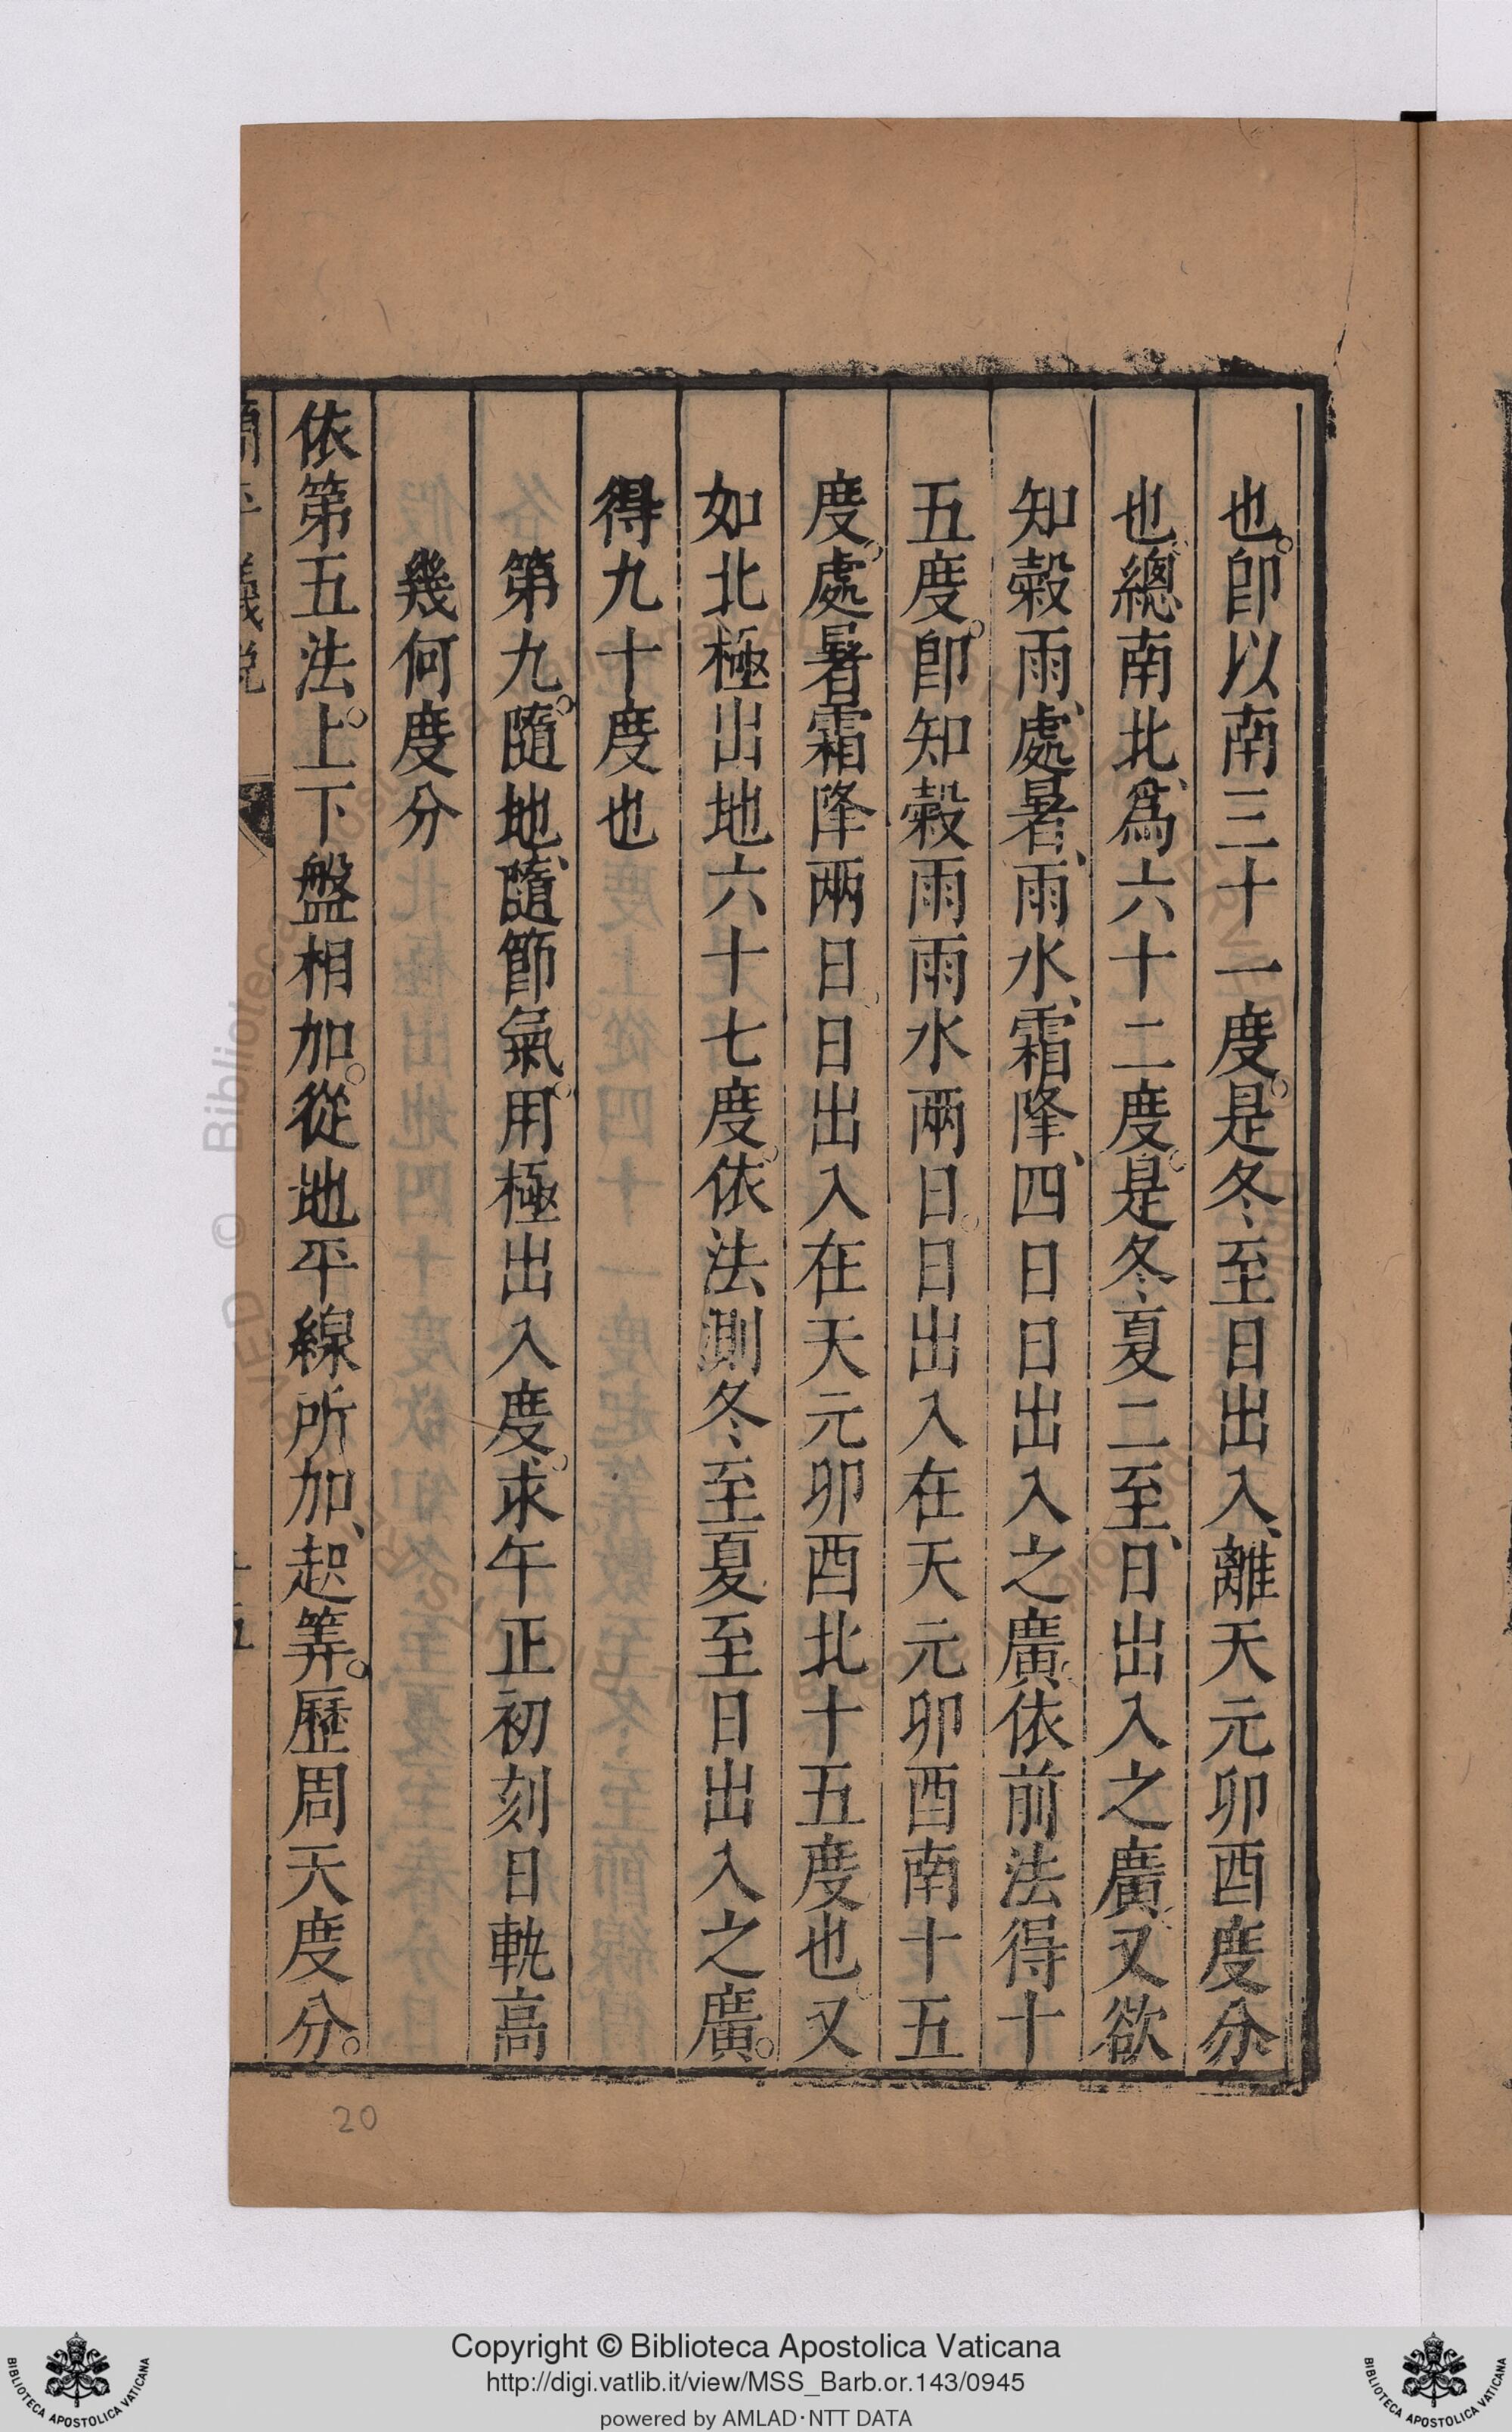 也。卽以南三十一度。是冬至日出入、離天元卯酉度分
也。總南北、爲六十二度。是冬夏二至、日出入之廣。又欲
知榖雨、處暑、雨水、霜降、四日日出入之廣。依前法得十
五度。卽知榖雨雨水兩日。日出入在天元卯酉南十五
度。處暑霜降兩日。日出入在天元卯酉北十五度也。又
如北極出地六十七度。依法測冬至夏至日出入之廣。
得九十度也
第九。隨地、隨節氣。用極出入度。求午正初刻日軌高
幾何度分
依第五法。上下盤相加。從地平線所加、起筭。歷周天度分。
簡平儀說
十五
20
Copyright © Biblioteca Apostolica Vaticana
http://digi.vatlib.it/view/MSS_Barb.or.143/0945
powered by AMLAD·NTT DATA
BIBLIOTECA APOSTOLICA VATICANA
BIBLIOTECA APOSTOLICA VATICANA